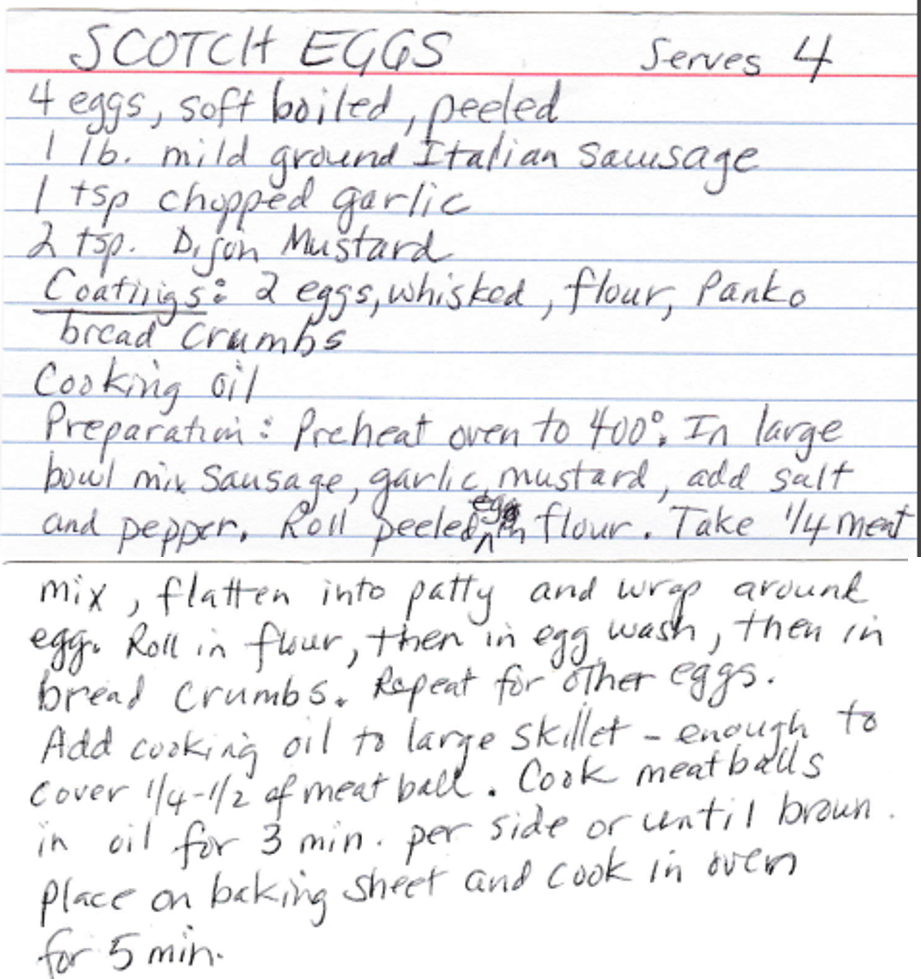 SCOTCH EGGS Serves 4
4 eggs, soft boiled, peeled
1 lb. mild ground Italian Sausage
1 tsp chopped garlic
2 tsp. Dijon Mustard
Coatings: 2 eggs, whisked, flour, Panko
bread Crumbs
Cooking oil
Preparation: Preheat oven to 400°. In large
bowl mix Sausage, garlic, mustard, add salt
and pepper. Roll peeled egg in flour. Take 1/4 meat
mix, flatten into patty and wrap around
egg. Roll in flour, then in egg wash, then in
bread Crumbs. Repeat for other eggs.
Add cooking oil to large skillet - enough to
cover 1/4-1/2 of meat ball. Cook meatballs
in oil for 3 min. per side or until brown.
Place on baking sheet and cook in oven
for 5 min.